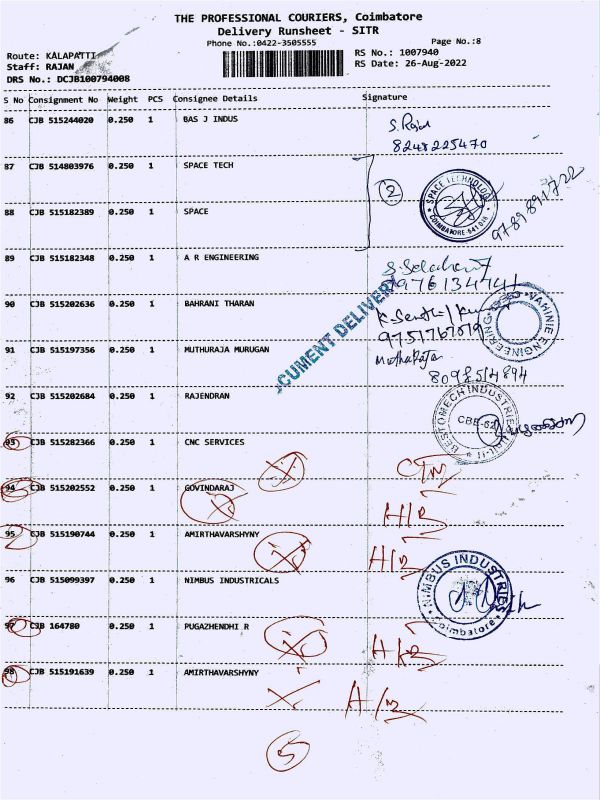 THE PROFESSIONAL COURIERS, Coimbatore
Delivery Runsheet - SITR
Phone No.:0422-3505555 Page No.:8
Route: KALAPATTI RS No.: 1007940
Staff: RAJAN RS Date: 26-Aug-2022
DRS No.: DCJB100794008
S No Consignment No Weight PCS Consignee Details Signature
86 CJB 515244020 0.250 1 BAS J INDUS S. Rajan
8248225470
87 CJB 514803976 0.250 1 SPACE TECH
2 SPACE TECHNOLOGY COIMBATORE-641 9789891722
88 CJB 515182389 0.250 1 SPACE
89 CJB 515182348 0.250 1 A R ENGINEERING
CUMENT DELIVER
90 CJB 515202636 0.250 1 BAHRANI THARAN
9751767079 VAHINIE ENGINEERING
91 CJB 515197356 0.250 1 MUTHURAJA MURUGAN MuthuRaja
8098514894
92 CJB 515202684 0.250 1 RAJENDRAN
BESTOMECH INDUSTRIES CBE-62
93 CJB 515282366 0.250 1 CNC SERVICES
94 CJB 515202552 0.250 1 GOVINDARAJ
95 CJB 515190744 0.250 1 AMIRTHAVARSHYNY
96 CJB 515099397 0.250 1 NIMBUS INDUSTRICALS
NIMBUS INDUSTRIES Coimbatore
97 CJB 164780 0.250 1 PUGAZHENDHI R
98 CJB 515191639 0.250 1 AMIRTHAVARSHYNY
5